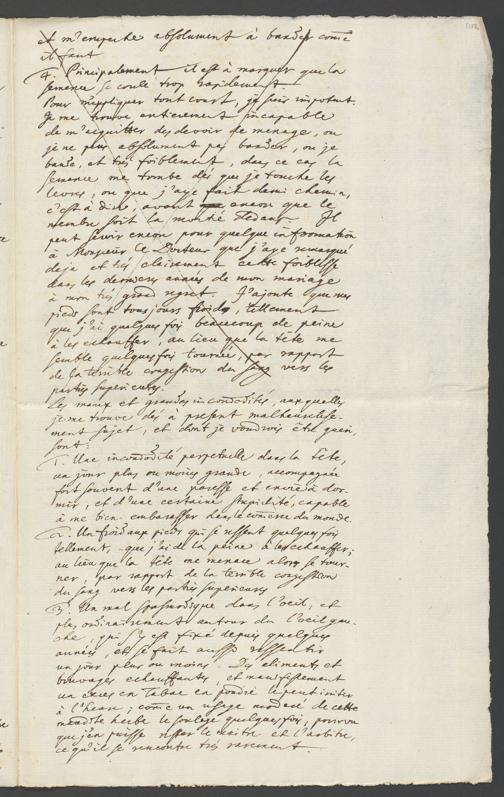 et m'empeche absolument à bander come
il faut
4. Principalement il est à marquer que la
semence se coule trop rapidement.
Pour m'appliquer tout court, je suis impotent.
Je me trouve entierement incapable
de m'aquitter des devoir de menage, ou
je ne peus absolument pas bander, ou je
bande, et très foiblement, dans ce cas la
semance me trombe dès que je touche les
levres, ou que j'aye fait demi chemin,
c'est à dire, avant encore que le
membre soit la moitié dedans. Il
peut servir encore pour quelque information
à Monsieur le Docteur que j'aye remarqué
deja et très clairement cette foiblesse
dans les dernieres années de mon mariage
à mon très grand regret. J'ajoute que mes
pieds sont tousjours froids, tellement
que j'ai quelques foi beaucoup de peine
à les echauffer, au lieu que la tête me
semble quelques fois tournée, par rapport
de la terrible congestion du sang vers les
parties superieures.
Les maux et grandes incomodités, auxquelles
je me trouve dès à present malheureuse-
ment sujet, et dont je voudrois être gueri,
sont:
1. Une incomodité perpetuelle dans la tête,
un jour plus ou moins grande, accompagnée
fort souvent d'une paresse et envie à dor-
mir, et d'une certaine stupidité, capable
à me bien embarasser dans le comerce du monde.
2. Un froid aux pieds qui se ressent quelques fois
tellement, que j'ai de la peine à les echauffer;
au lieu que la tête me menace alors se tour-
ner, par rapport de la terrible congestion
du sang vers les parties superieures
3. Un mal spasmodique dans l'oeil, et
plus ordinairement autour du l'oeil gau-
che, qui s'y est fixé depuis quelques
années, et se fait aussi ressentir
un jour plus ou moins. Des aliments et
bouvages echauffantes, et manifestement
un exces en Tabac en poudre le peut irriter
à l'heure; come un usage moderé de cette
meudite herbe le soulege quelques foi, pourvu
que j'en puisse rester le maitre et l'arbitre,
ce qu'il se rencontre très rarement.